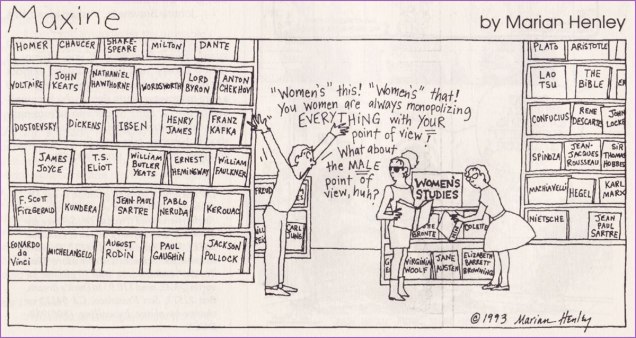 Maxine
by Marian Henley
HOMER CHAUCER SHAKE-SPEARE MILTON DANTE
VOLTAIRE JOHN KEATS NATHANIEL HAWTHORNE WORDSWORTH LORD BYRON ANTON CHEKHOV
DOSTOEVSKY DICKENS IBSEN HENRY JAMES FRANZ KAFKA
JAMES JOYCE T.S. ELIOT WILLIAM BUTLER YEATS ERNEST HEMINGWAY WILLIAM FAULKNER
F. SCOTT FITZGERALD KUNDERA JEAN-PAUL SARTRE PABLO NERUDA KEROUAC
LEONARDO da VINCI MICHELANGELO AUGUST RODIN PAUL GAUGHIN JACKSON POLLOCK
"Women's" this! "Women's" that!
You women are always monopolizing
EVERYTHING with YOUR
point of view!
What about
the MALE
point of
view, huh?
FREUD
CARL JUNG
WOMEN'S
STUDIES
BRONTE COLETTE
VIRGINIA WOOLF JANE AUSTEN ELIZABETH BARRETT BROWNING
PLATO ARISTOTLE
LAO TSU THE BIBLE
CONFUCIUS RENE DESCARTES JOHN LOCKE
SPINOZA JEAN-JACQUES ROUSSEAU SIR THOMAS HOBBES
MACHIAVELLI HEGEL KARL MARX
NIETSCHE JEAN PAUL SARTRE
© 1993 Marian Henley